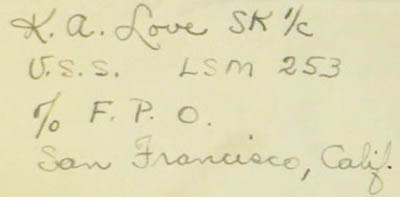 K. A. Love SK 1/c
U.S.S. LSM 253
c/o F. P. O.
San Francisco, Calif.